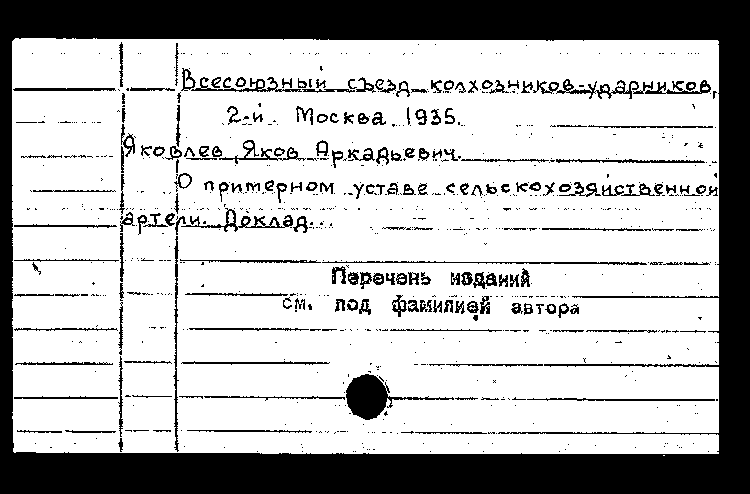 Всесоюзный съезд колхозников-ударников,
2-й. Москва. 1935.
Яковлев, Яков Аркадьевич.
О примерном уставе сельскохозяйственной
артели. Доклад...
Перечень изданий
см. под фамилией автора